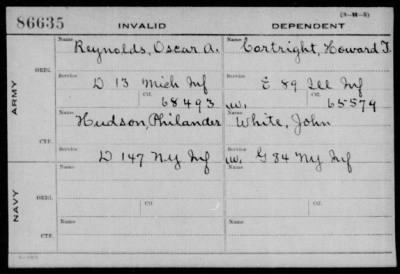 86635 INVALID DEPENDENT (3-M-5)
Name Reynolds, Oscar A. Name Cartright, Howard T.
ARMY ORIG. Service D 13 Mich Inf Service E 89 Ill Inf
Ctf. 68493 W. Ctf. 65574
Name Hudson, Philander Name White, John
CTF. Service D 147 NY Inf Service W. G 84 NY Inf
NAVY ORIG. Name Name
Service Service
Ctf. Ctf.
CTF. Name Name
Service Service